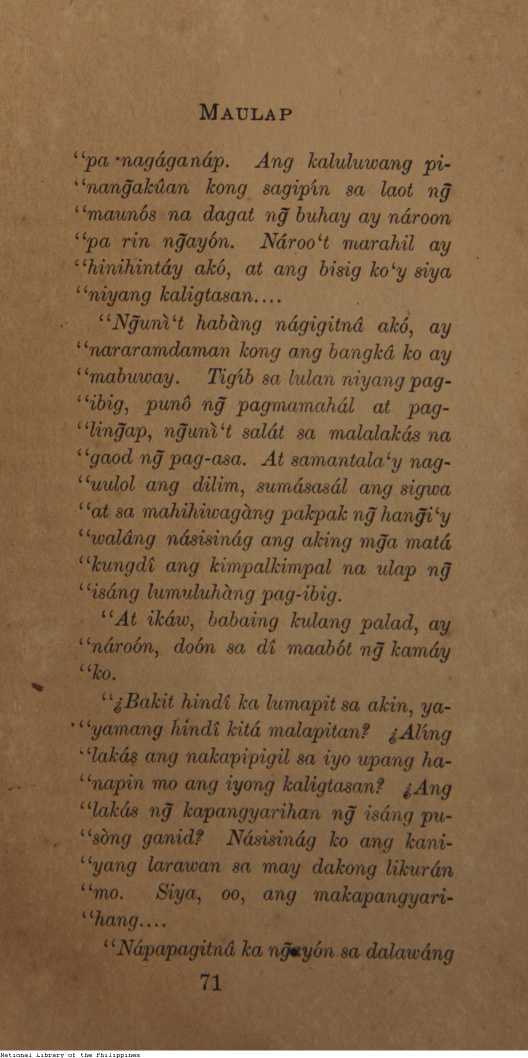 MAULAP
“pa nagáganáp. Ang kaluluwang pi-
“nang̃akûan kong sagipín sa laot ng̃
“maunós na dagat ng̃ buhay ay nároon
“pa rin ng̃ayón. Nároo‘t marahil ay
“hinihintáy akó, at ang bisig ko‘y siya
“niyang kaligtasan....
“Ng̃unì‘t habàng nágigitnâ akó, ay
“nararamdaman kong ang bangkâ ko ay
“mabuway. Tigíb sa lulan niyang pag-
“ibig, punô ng̃ pagmamahál at pag-
“ling̃ap, ng̃unì‘t salát sa malalakás na
“gaod ng̃ pag-asa. At samantala‘y nag-
“uulol ang dilim, sumásasál ang sigwa
“at sa mahihiwagàng pakpak ng̃ hang̃i‘y
“walâng násisinág ang aking mg̃a matá
“kungdî ang kimpalkimpal na ulap ng̃
“isáng lumuluhàng pag-ibig.
“At ikáw, babaing kulang palad, ay
“nároón, doón sa dî maabót ng̃ kamáy
“ko.
“¿Bakit hindî ka lumapit sa akin, ya-
“yamang hindî kitá malapitan? ¿Alíng
“lakás ang nakapipigil sa iyo upang ha-
“napin mo ang iyong kaligtasan? ¿Ang
“lakás ng̃ kapangyarihan ng̃ isáng pu-
“sòng ganid? Násisinág ko ang kani-
“yang larawan sa may dakong likurán
“mo. Siya, oo, ang makapangyari-
“hang....
“Nápapagitnâ ka ng̃ayón sa dalawáng
71
National Library of the Philippines